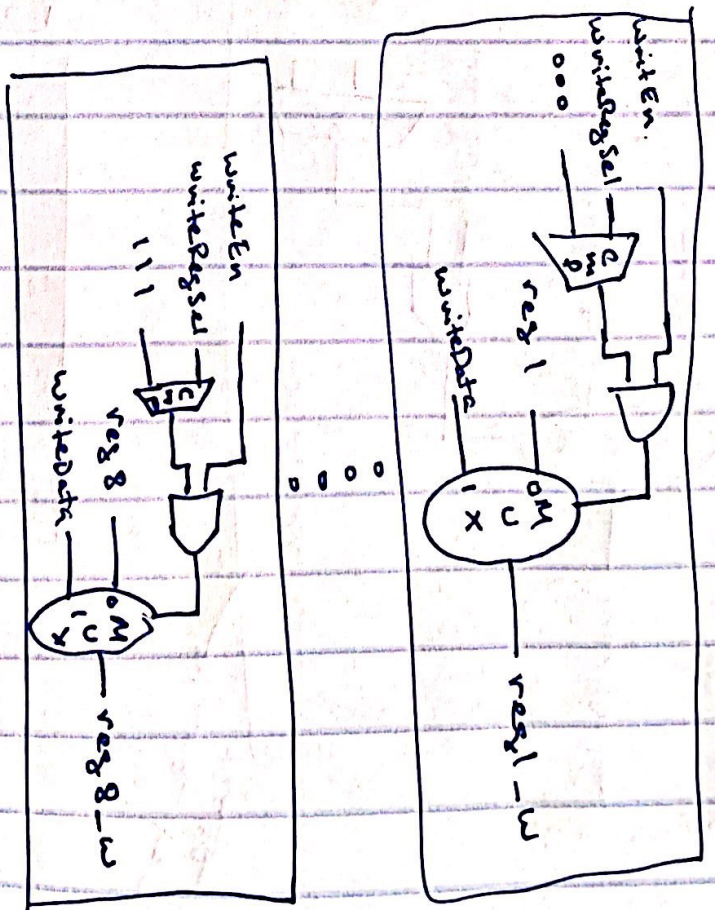 writEn.
writeRegSel
000
Cmp
reg1
writeData
0 M
U
1 X
reg1_w
writeEn
writeRegSel
111
Cmp
reg8
writeData
0 M
U
1 X
reg8_w